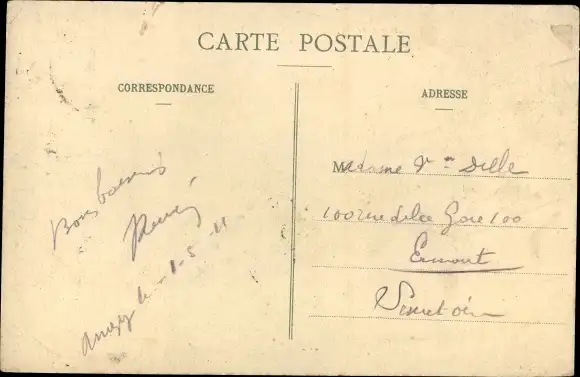 CARTE POSTALE
CORRESPONDANCE
ADRESSE
Bons baisers
le 1-5-11
Madame Vve
100 rue de la Gare 100
Ermont
Seine et Oise